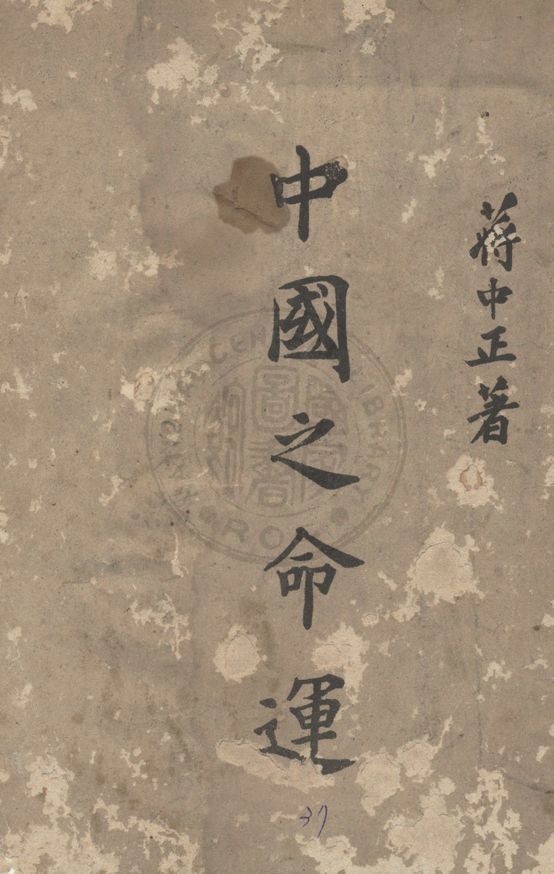 蔣中正著
中國之命運
37